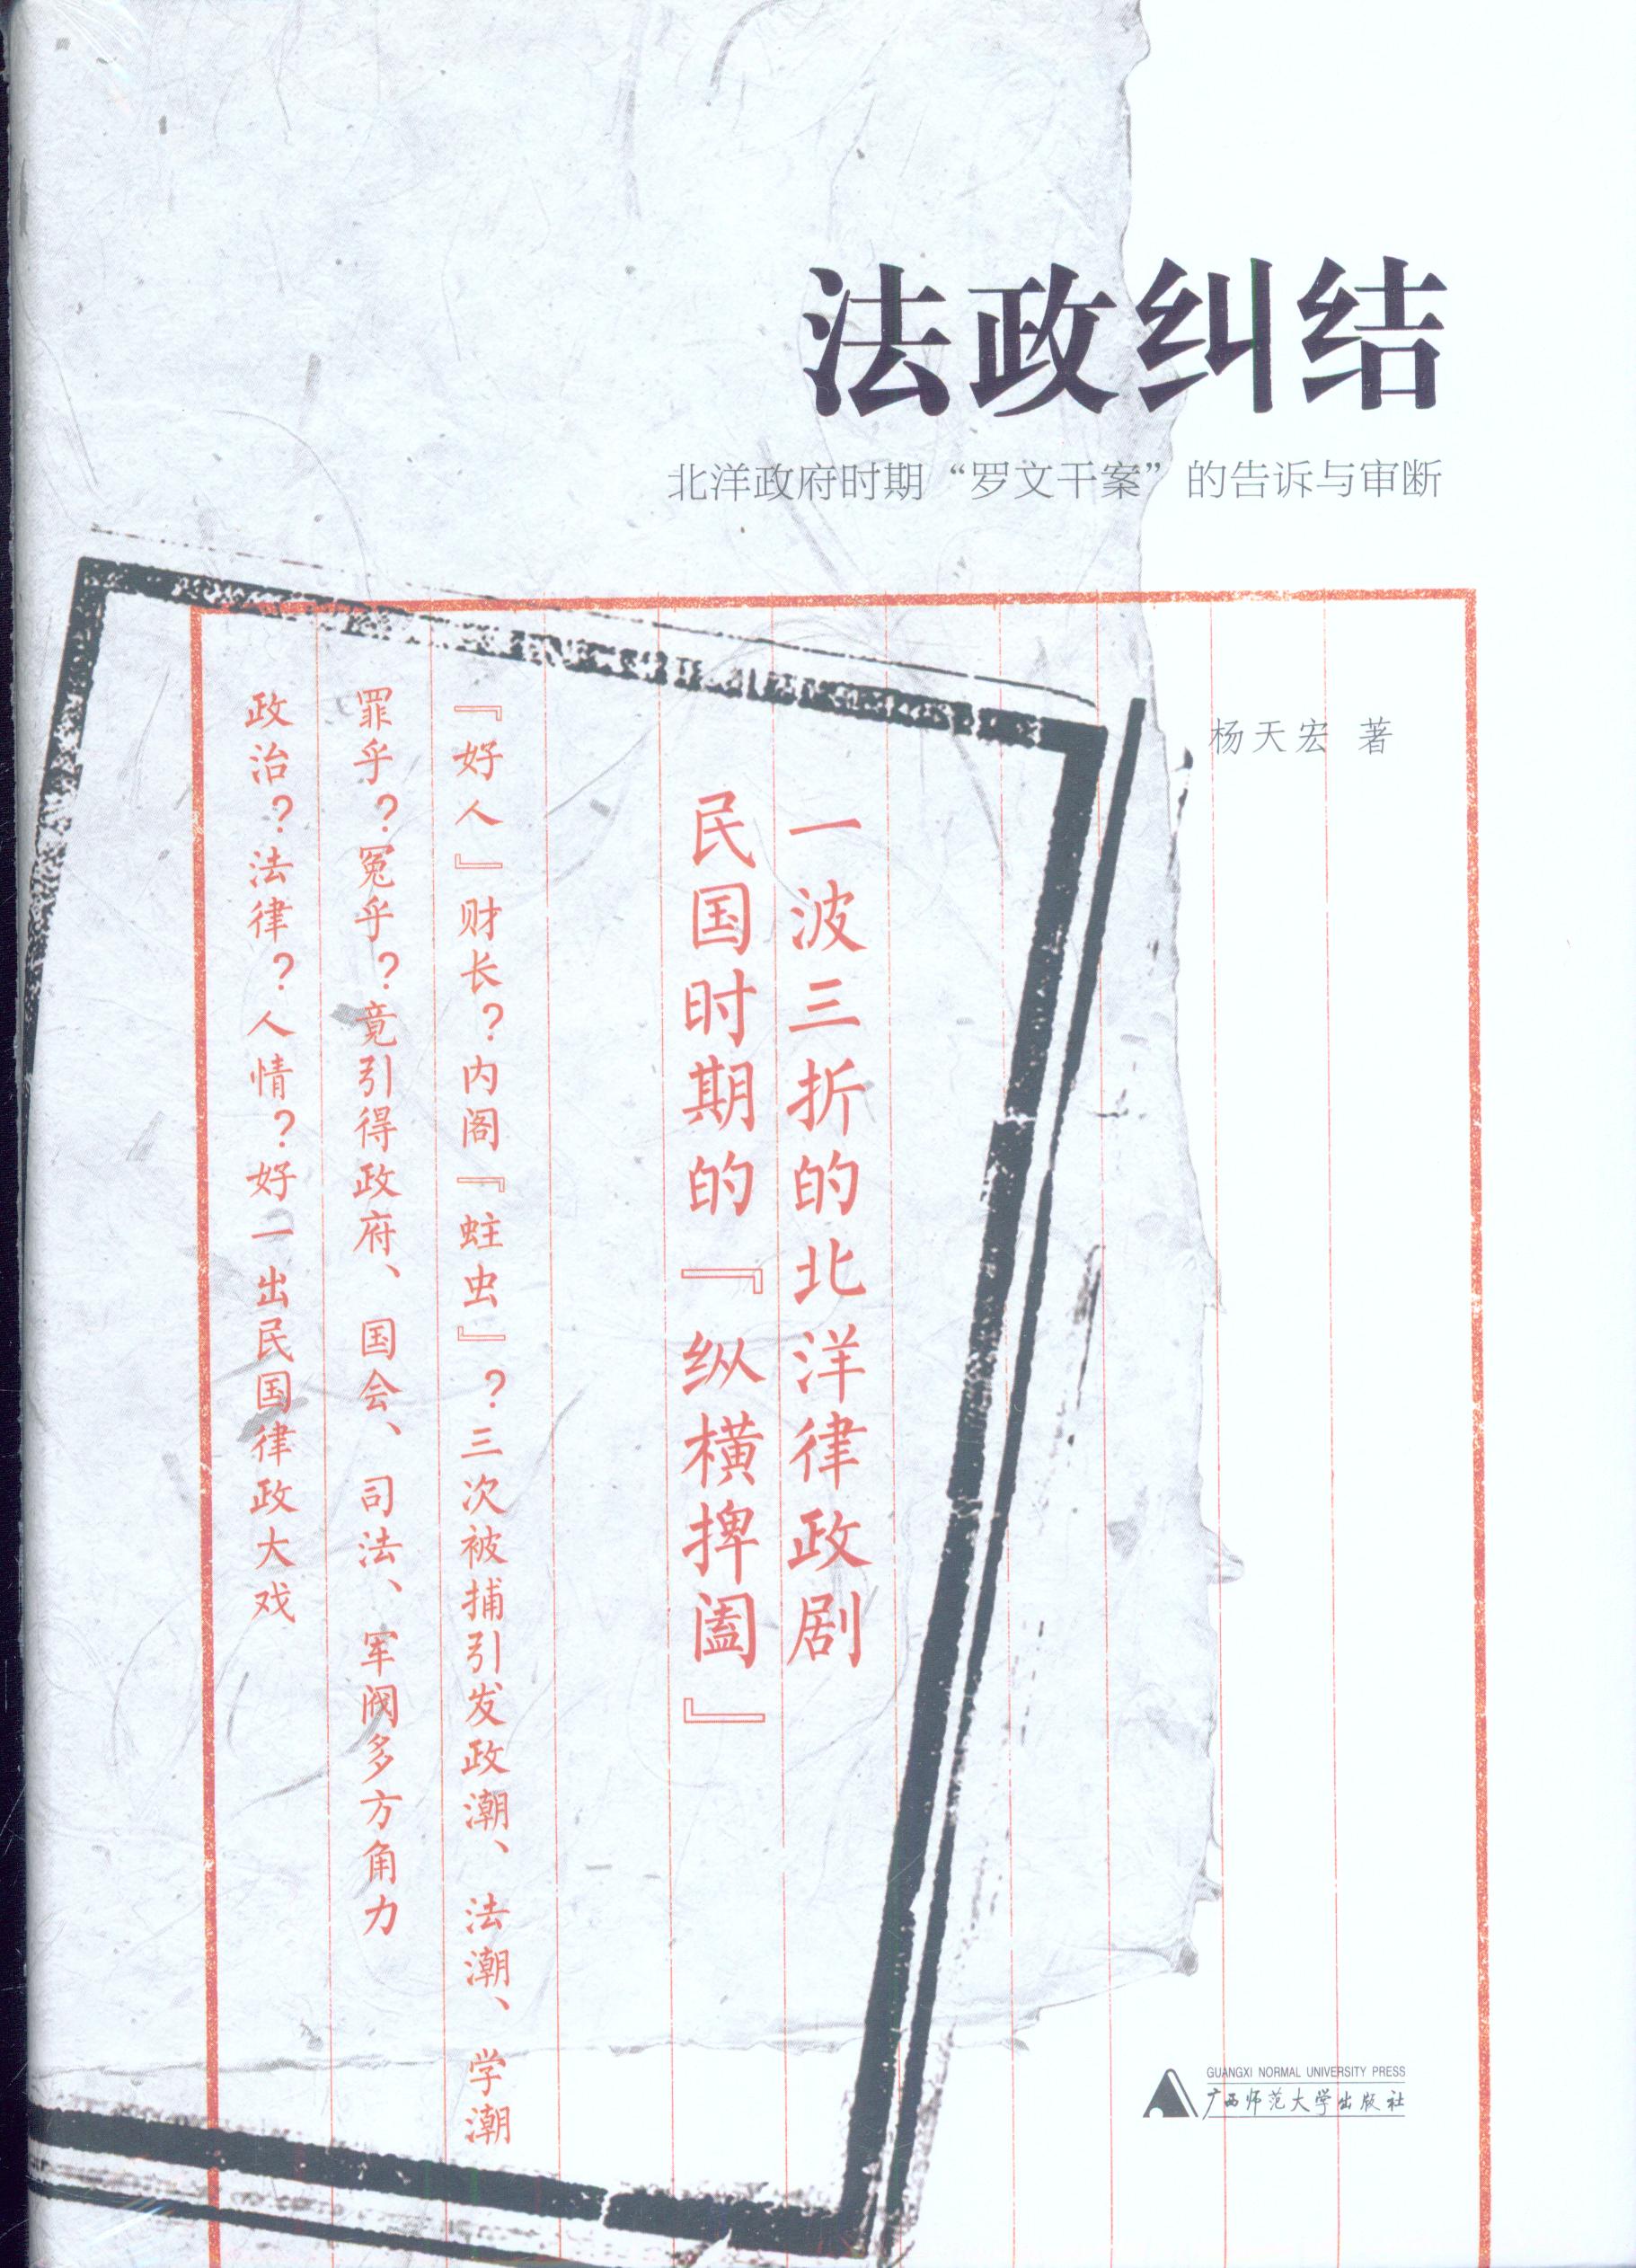 法政纠结
北洋政府时期“罗文干案”的告诉与审断
杨天宏 著
一波三折的北洋律政剧
民国时期的『纵横捭阖』
『好人』财长？内阁『蛀虫』？三次被捕引发政潮、法潮、学潮
罪乎？冤乎？竟引得政府、国会、司法、军阀多方角力
政治？法律？人情？好一出民国律政大戏
GUANGXI NORMAL UNIVERSITY PRESS
广西师范大学出版社